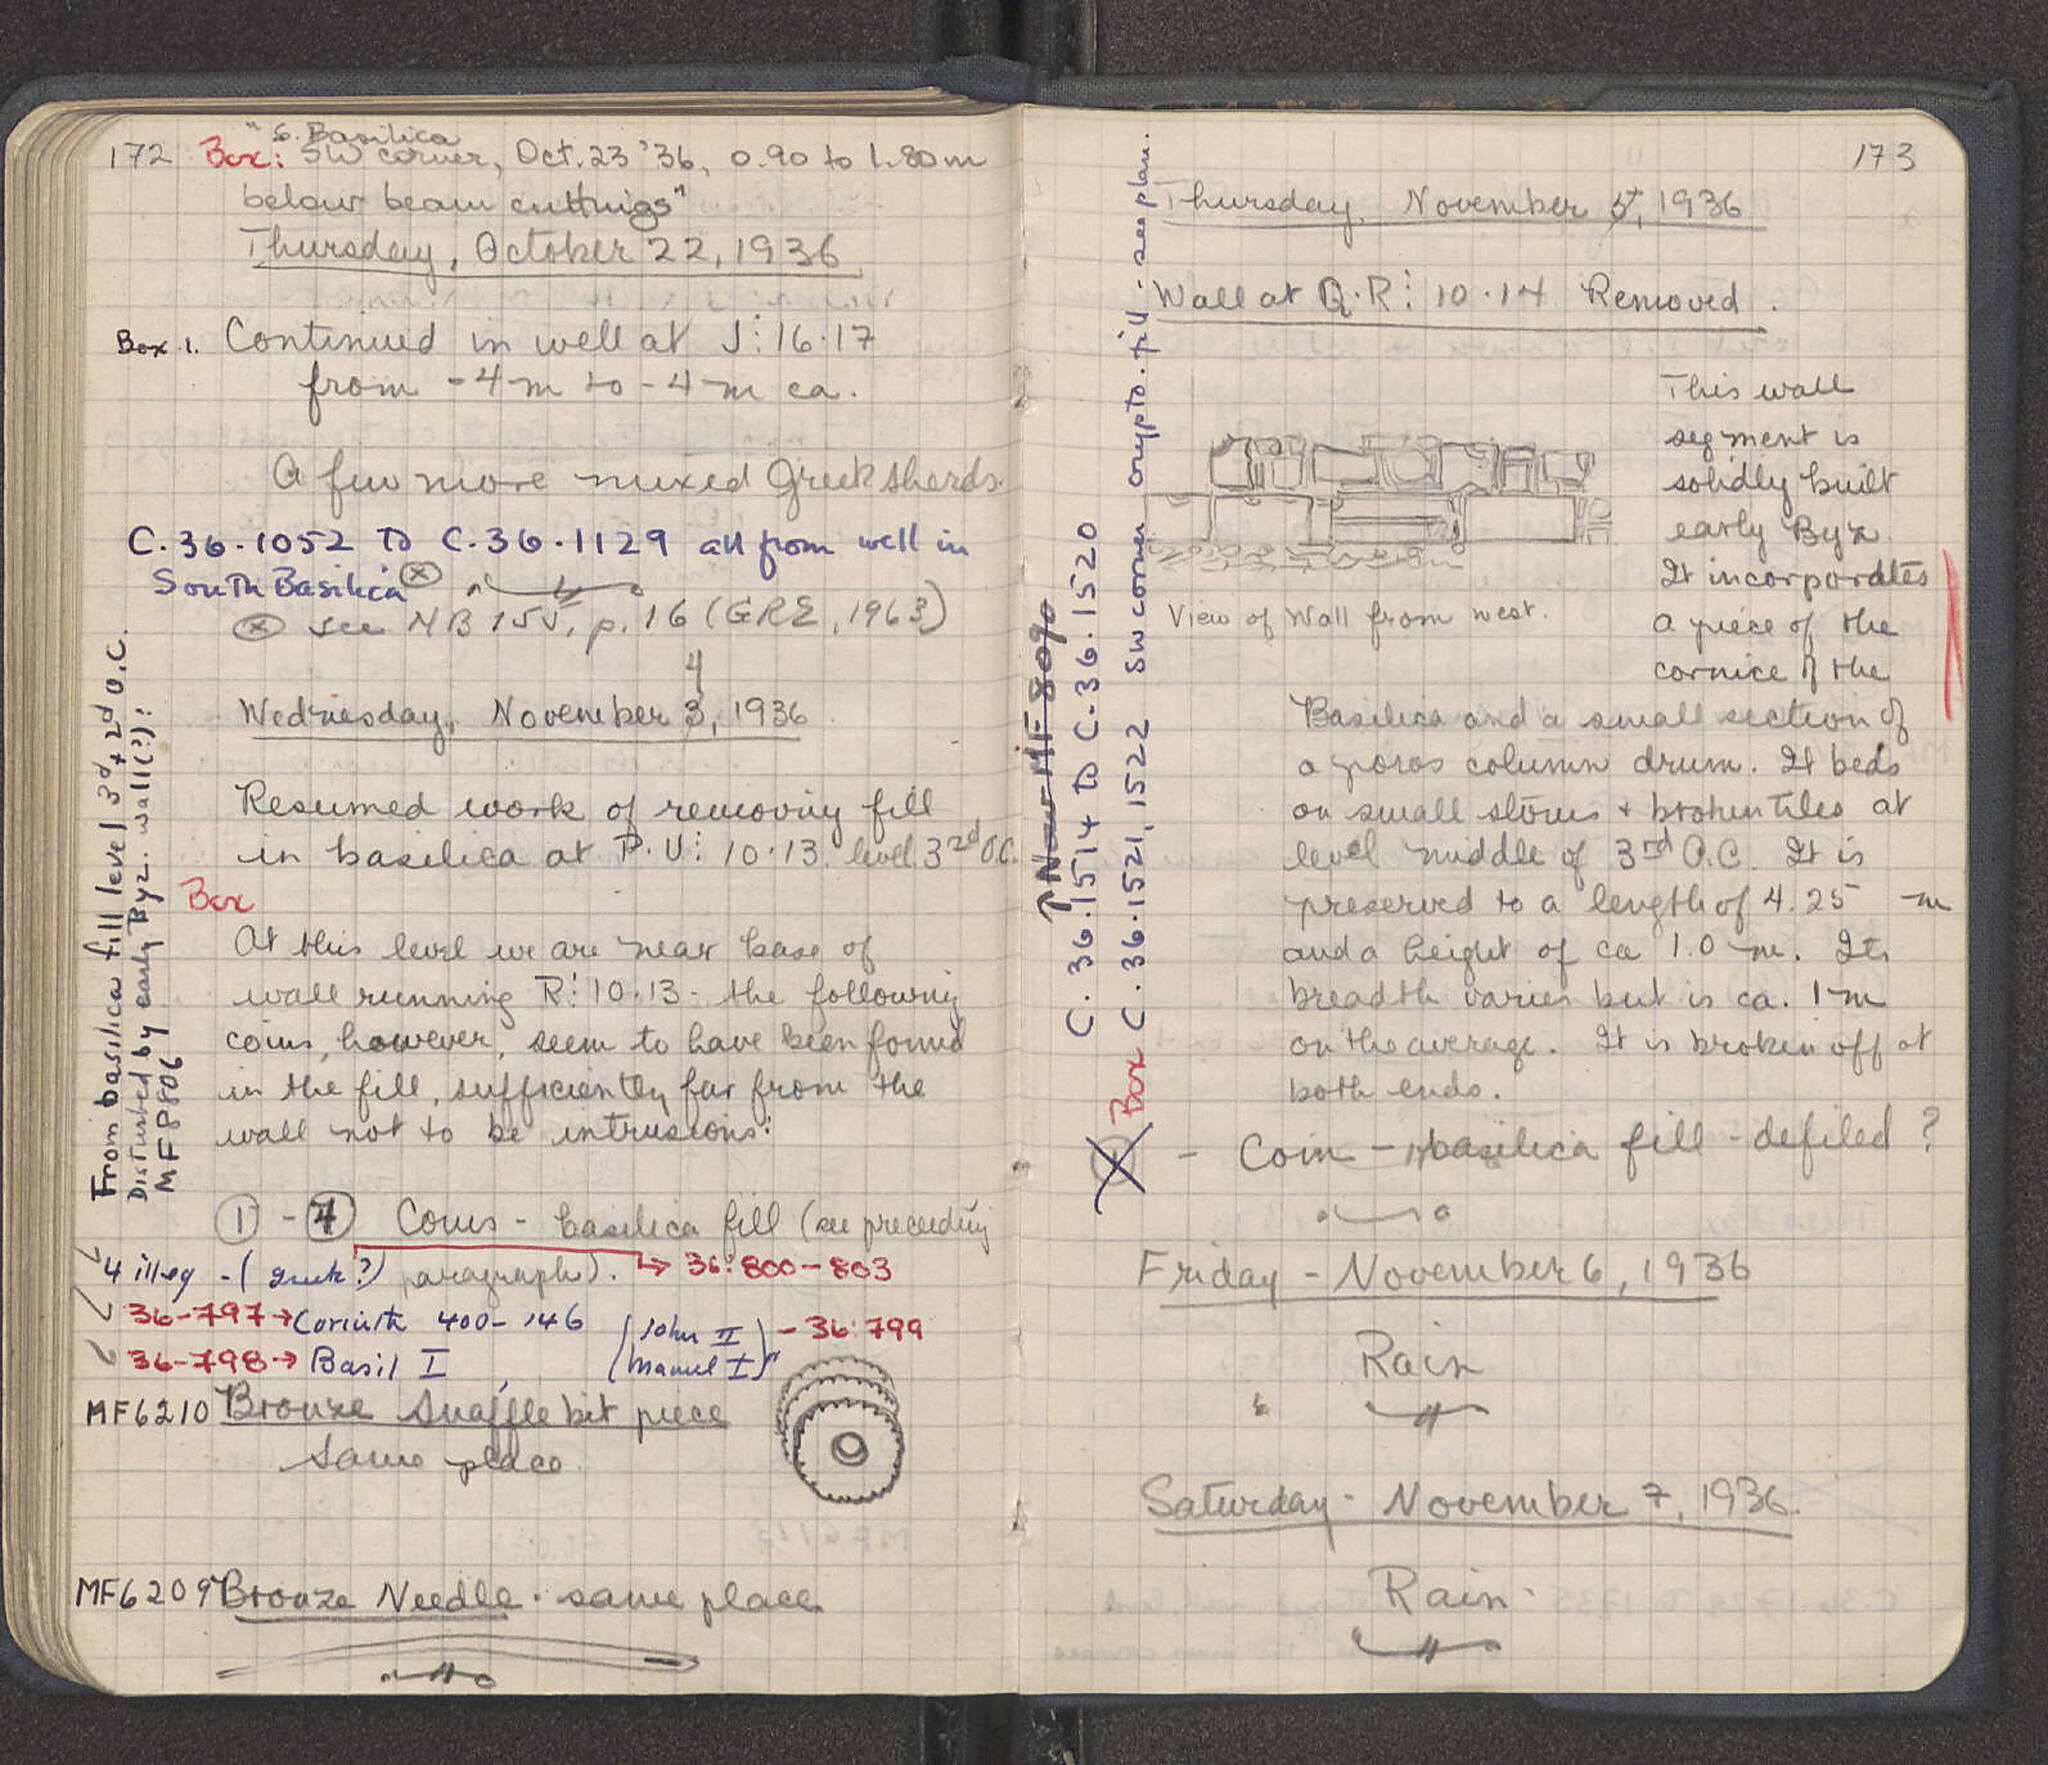 172 Box: "S. Basilica
SW corner, Oct. 23 '36, 0.90 to 1.80 m
below beam cuttings"
Thursday, October 22, 1936
Box 1. Continued in well at J:16·17
from -4 m to -4 m ca.
A few more mixed Greek sherds.
C·36·1052 to C·36·1129 all from well in
South Basilica ⓧ
ⓧ see NB 155, p. 16 (GRE, 1963)
4
Wednesday, November 3, 1936
Resumed work of removing fill
in basilica at P·U: 10·13. level 3 2d O.C.
Box
At this level we are near base of
wall running R: 10·13. The following
coins, however, seem to have been found
in the fill, sufficiently far from the
wall not to be intrusions:
① - ④ Coins - basilica fill (see preceding
4 illeg - (greek?) paragraph). → 36:800-803
36-797 → Corinth 400-146 (John II) - 36:799
36-798 → Basil I, (Manuel I)"
MF6210 Bronze snaffle bit piece
same place
MF6209 Bronze Needle · same place
From basilica fill level 3d + 2d O.C.
Disturbed by early Byz. wall(?):
MF8806
173
Thursday, November 5, 1936
Wall at Q·R: 10·14 Removed.
This wall
segment is
solidly built
early Byz.
It incorporates
View of Wall from west.
a piece of the
cornice of the
Basilica and a small section of
a poros column drum. It beds
on small stones + broken tiles at
level middle of 3rd O.C. It is
preserved to a length of 4.25 m
and a height of ca 1.0 m. Its
breadth varies but is ca. 1 m
on the average. It is broken off at
both ends.
- Coin - basilica fill - defiled?
Friday - November 6, 1936
Rain
Saturday - November 7, 1936.
Rain.
↑ Now MF 8090
C·36·1514 to C·36·1520
Box C·36·1521, 1522 SW corner crypto. fill · see plan.